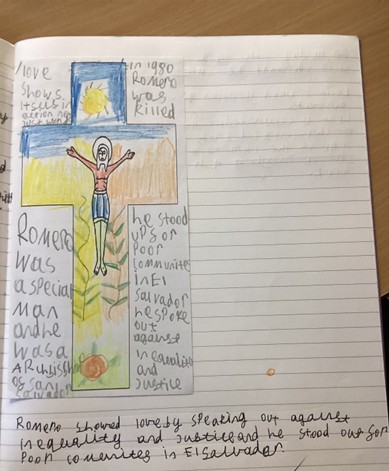 love
shows
itself in
action not
just words
in 1980
Romero
was
killed
Romero
was
a special
man
and he
was a
ARchbishop
of san
salvador
he stood
up for
poor
communites
in El
salvador
he spoke
out
against
inequality
and
justice
Romero showed love by speaking out against
inequality and justice and he stood out for
poor comunites in El salvador.